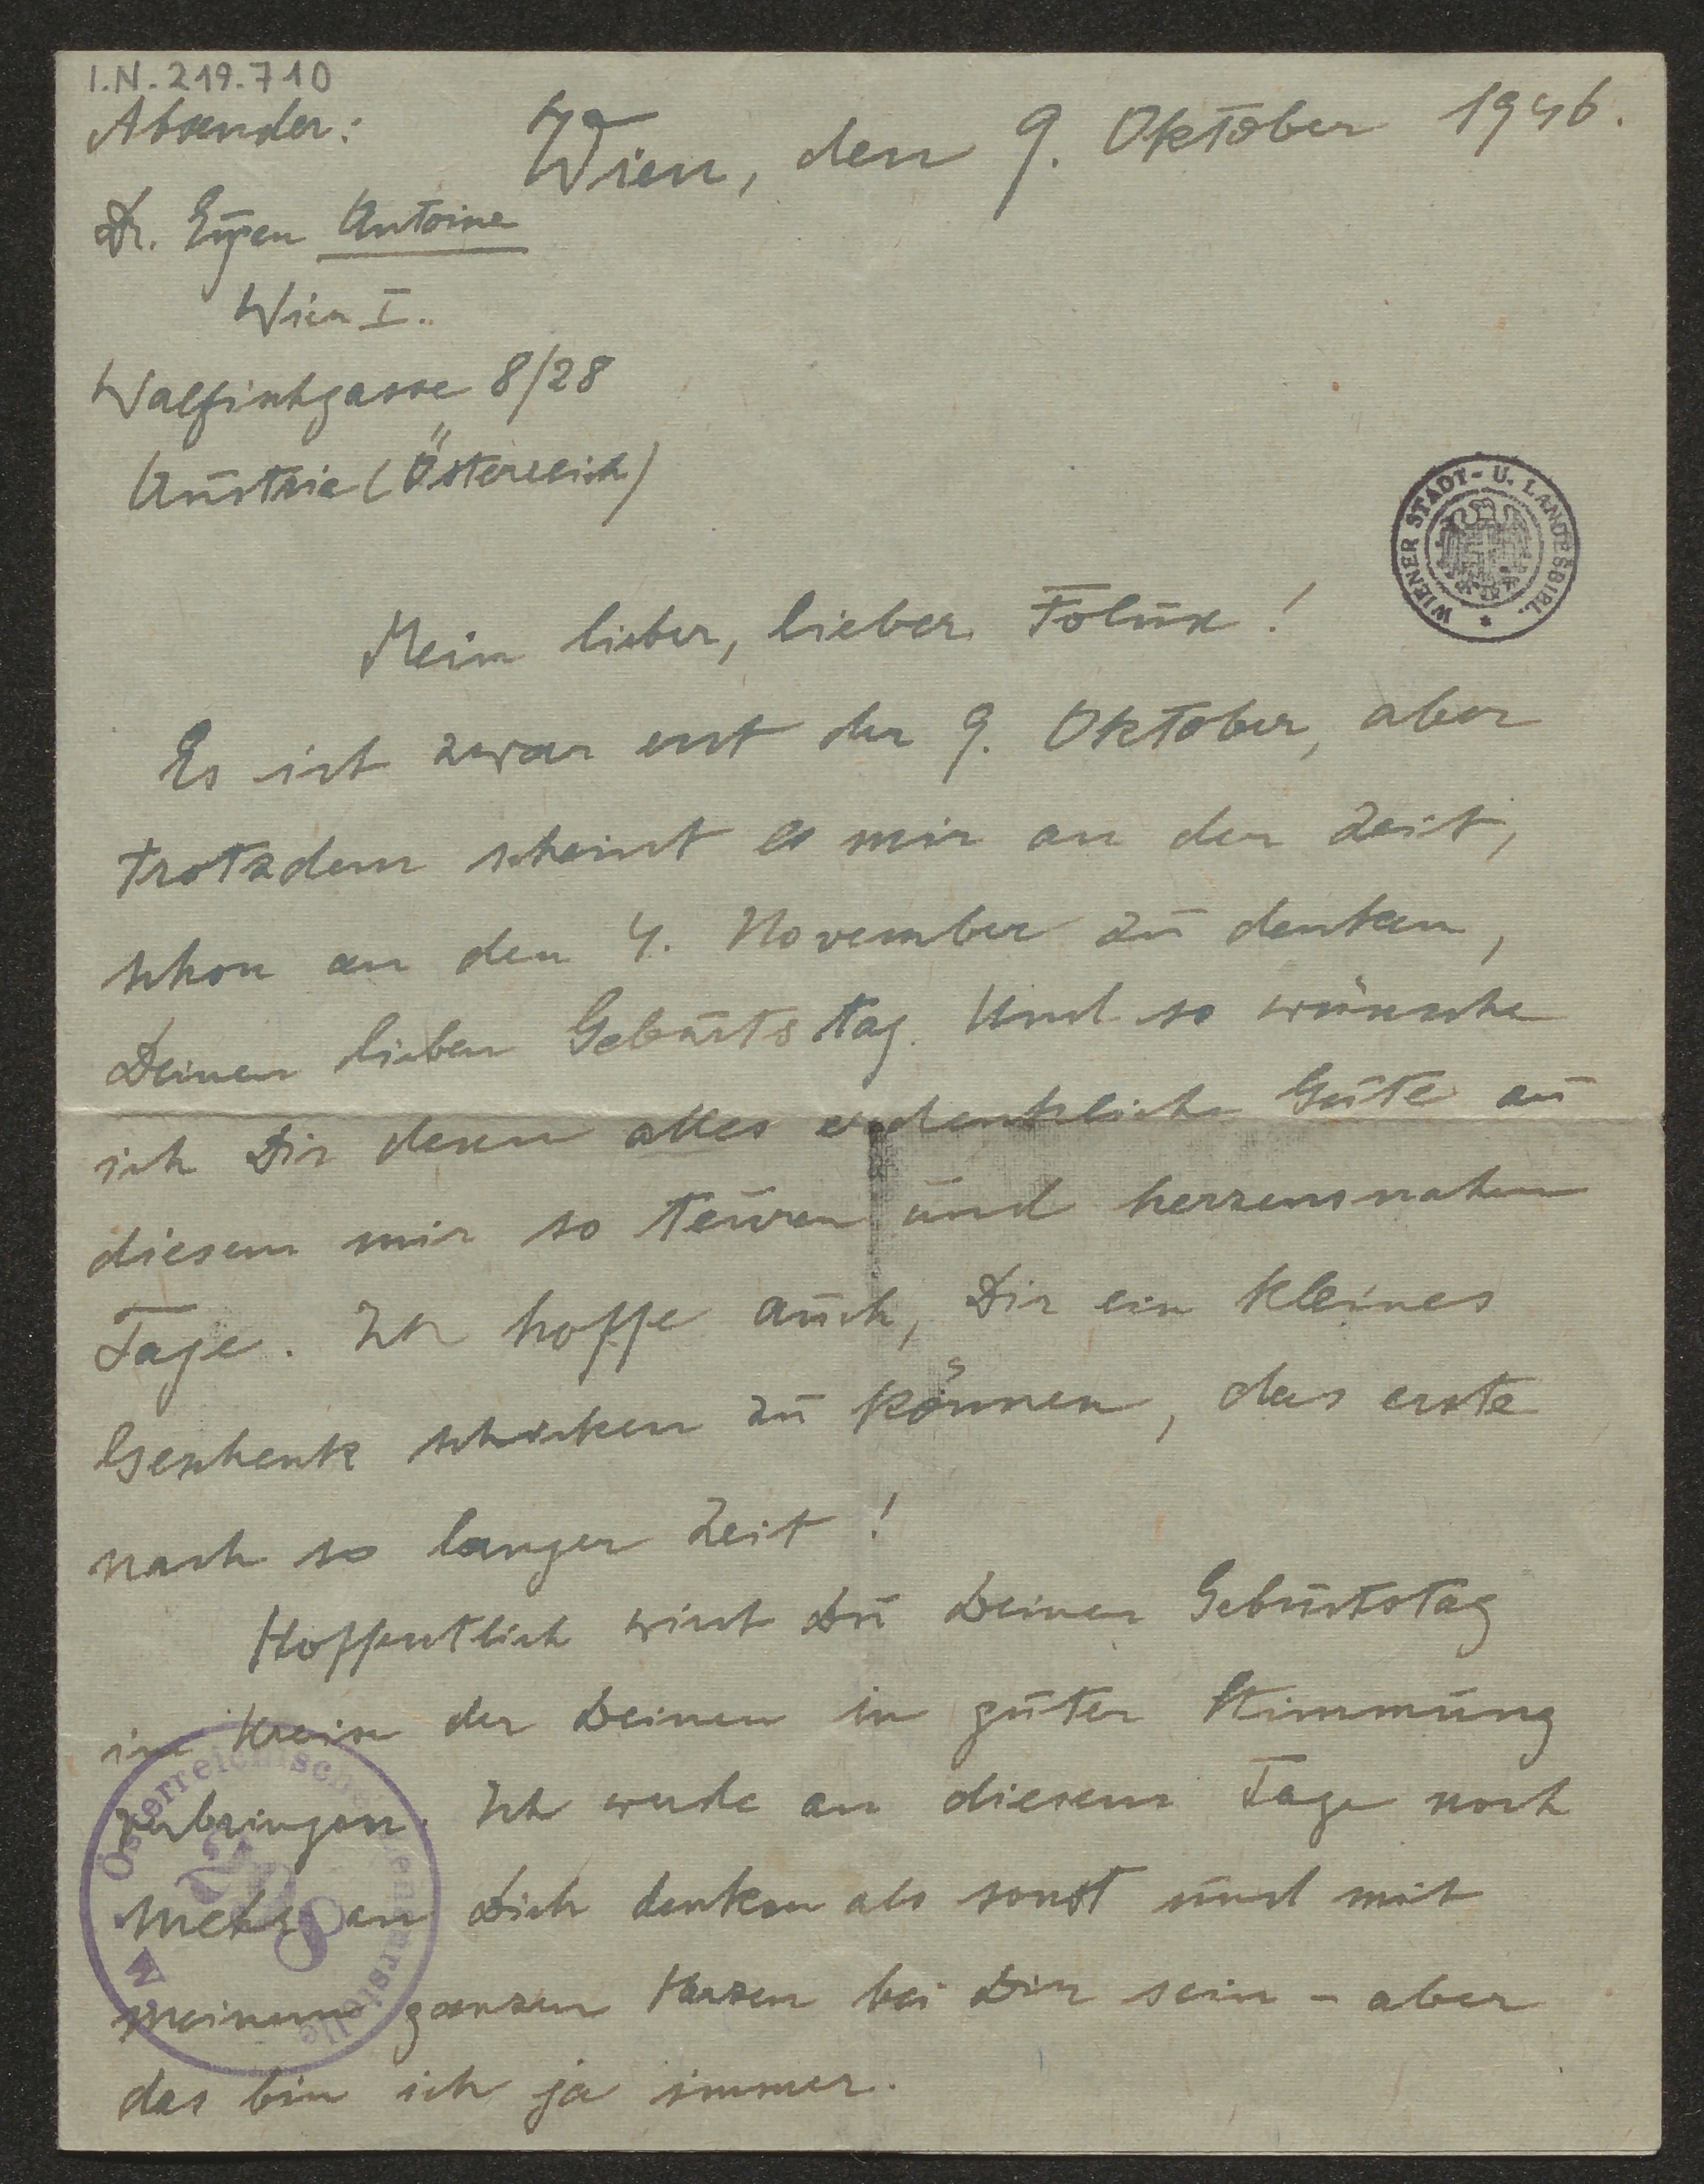 I.N. 219.710
Absender:
Wien, den 9. Oktober 1946.
Dr. Eugen Antoine
Wien I.
Walfischgasse 8/28
Austria (Österreich)
WIENER STADT- U. LANDESBIBL.
Mein lieber, lieber !
Es ist zwar erst der 9. Oktober, aber
trotzdem scheint es mir an der Zeit,
schon an den 4. November zu denken,
Deinen lieben Geburtstag. Und so wünsche
ich Dir denn alles erdenkliche Gute zu
diesem mir so teuren und herzensnahen
Tage. Ich hoffe auch, Dir ein kleines
Geschenk schicken zu können, das erste
nach so langer Zeit!
Hoffentlich wirst Du Deinen Geburtstag
im Kreise der Deinen in guter Stimmung
verbringen. Ich werde an diesem Tage noch
mehr an Dich denken als sonst und mit
meinem ganzen Herzen bei Dir sein - aber
das bin ich ja immer.
Österreichische Zensurstelle